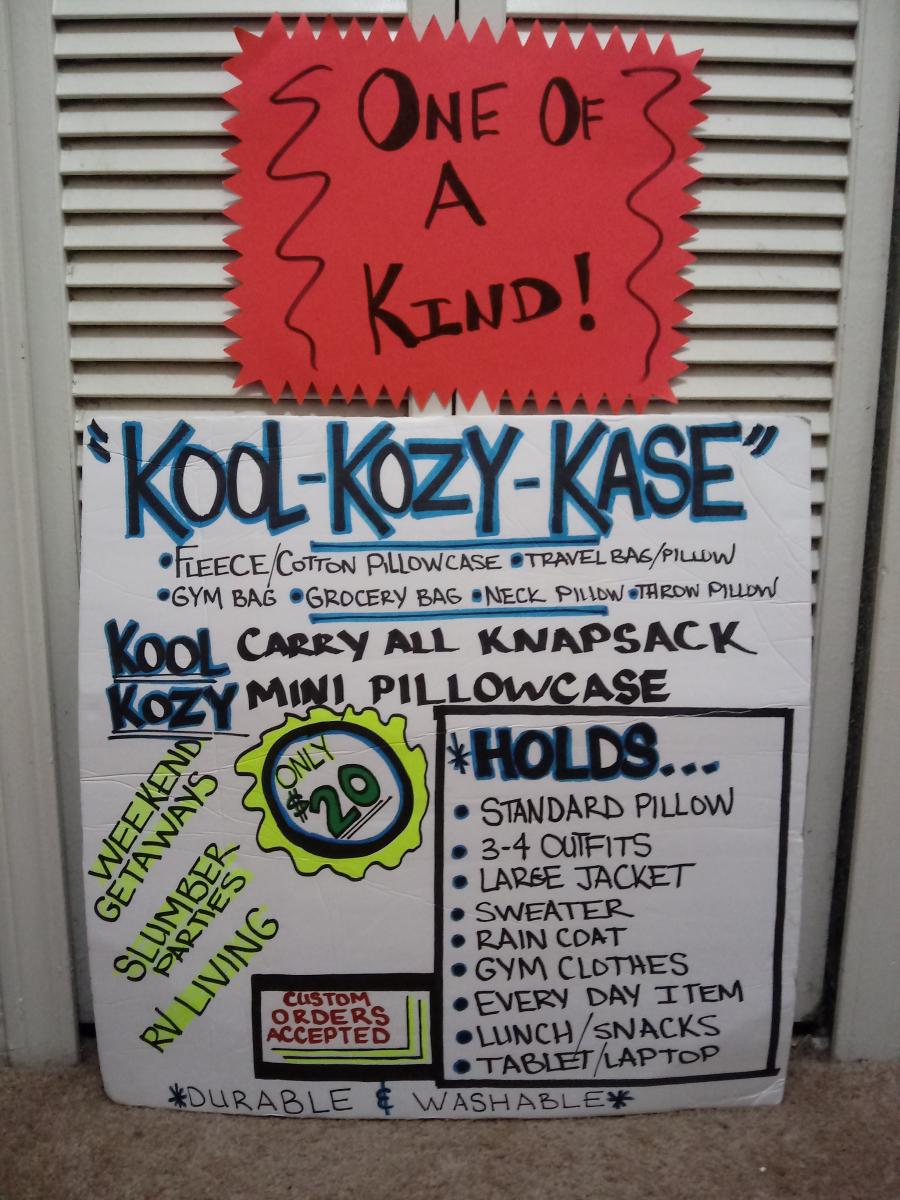 ONE OF
A
KIND!
"KOOL-KOZY-KASE"
•FLEECE/COTTON PILLOWCASE •TRAVEL BAG/PILLOW
•GYM BAG •GROCERY BAG •NECK PILLOW •THROW PILLOW
KOOL CARRY ALL KNAPSACK
KOZY MINI PILLOWCASE
WEEKEND
GETAWAYS
SLUMBER
PARTIES
RV LIVING
ONLY
$20
CUSTOM
ORDERS
ACCEPTED
*HOLDS...
• STANDARD PILLOW
• 3-4 OUTFITS
• LARGE JACKET
• SWEATER
• RAIN COAT
• GYM CLOTHES
• EVERY DAY ITEM
• LUNCH/SNACKS
• TABLET/LAPTOP
*DURABLE & WASHABLE*